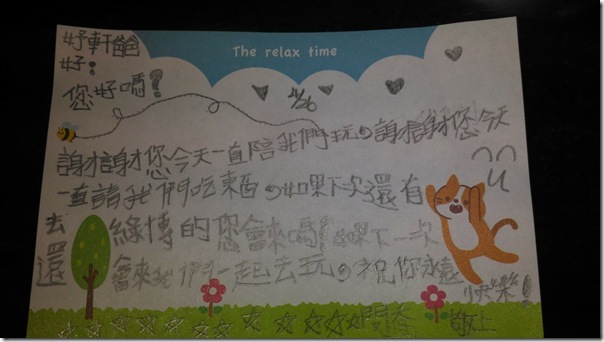 The relax time
妤軒爸
好:
您好嗎! 4/26
謝謝您今天一直陪我們玩。謝謝您今天
一直請我們吃東西。如果下次還有
去綠博的您會來嗎!如果下一次
還會來我們一起去玩。祝你永遠
快樂!
敬上